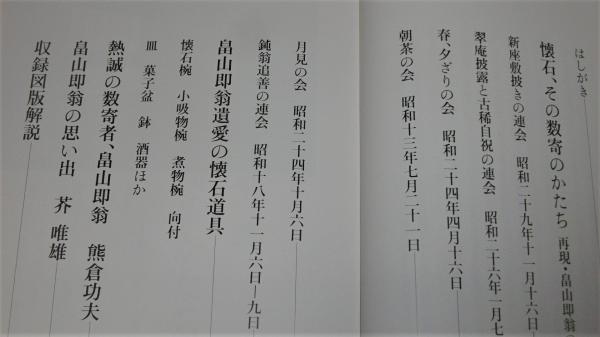 はしがき
懐石、その数寄のかたち 再現・畠山即翁
新座敷披きの連会 昭和二十九年十一月十六日
翠庵披露と古稀自祝の連会 昭和二十六年一月七
春、夕ざりの会 昭和二十四年四月十六日
朝茶の会 昭和十三年七月二十一日
月見の会 昭和二十四年十月六日
鈍翁追善の連会 昭和十八年十一月六日—九日
畠山即翁遺愛の懐石道具
懐石椀 小吸物椀 煮物椀 向付
皿 菓子盆 鉢 酒器ほか
熱誠の数寄者、畠山即翁 熊倉功夫
畠山即翁の思い出 芥 唯雄
収録図版解説